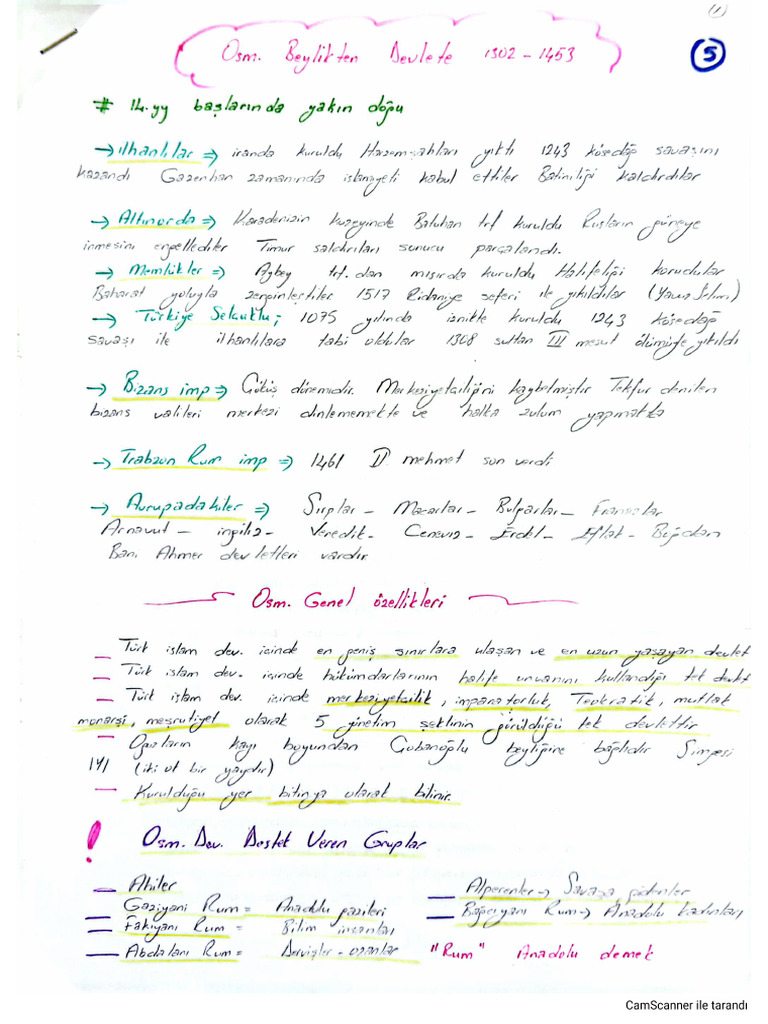 (1)
5
Osm. Beylikten Devlete 1302 - 1453
# 14.yy başlarında yakın doğu
→ ilhanlılar ⇒ iranda kuruldu Harzemşahları yıktı 1243 kösedağ savaşını
kazandı Gazenhan zamanında islamiyeti kabul ettiler Batiniliği kaldırdılar
→ Altınorda ⇒ Karadenizin kuzeyinde Batuhan trf kuruldu Rusların güneye
inmesini engellediler Timur saldırıları sonucu parçalandı.
→ Memlükler ⇒ Aybey trf.dan mısırda kuruldu Halifeliği korudular
Baharat yoluyla zenginleştiler 1517 Ridaniye seferi ile yıkıldılar (Yavuz Selim)
→ Türkiye Selçuklu; 1075 yılında iznikte kuruldu 1243 kösedağ
savaşı ile ilhanlılara tabi oldular 1308 sultan III mesut ölümüyle yıkıldı
→ Bizans imp ⇒ Çöküş dönemidir. Merkeziyetçiliğini kaybetmiştir Tekfur denilen
bizans valileri merkezi dinlememekte ve halka zulum yapmakta
→ Trabzon Rum imp ⇒ 1461 II mehmet son verdi
→ Avrupadakiler ⇒ Sırplar - Macarlar - Bulgarlar - Fransızlar
Arnavut - ingiliz - Venedik - Ceneviz - Erdel - Eflak - Boğdan
Bani Ahmer devletleri vardır
Osm. Genel özellikleri
— Türk islam dev. içinde en geniş sınırlara ulaşan ve en uzun yaşayan devlet
— Türk islam dev. içinde hükümdarlarının halife unvanını kullandığı tek devlet
— Türk islam dev. içinde merkeziyetçilik, imparatorluk, Teokratik, mutlak
monarşi, meşrutiyet olarak 5 yönetim şeklinin görüldüğü tek devlettir
— Oguzların kayı boyundan Çobanoğlu beyliğine bağlıdır Simgesi
IYI (iki ok bir yaydır)
— Kurulduğu yer bitinya olarak bilinir.
! Osm. Dev. Destek Veren Gruplar
— Ahiler
— Gaziyanı Rum = Anadolu gazileri
— Fakıyanı Rum = Bilim insanları
— Abdalanı Rum = Dervişler - ozanlar
— Alperenler → Savaşa gidenler
— Bağcıyanı Rum → Anadolu kadınları
"Rum" Anadolu demek
CamScanner ile tarandı